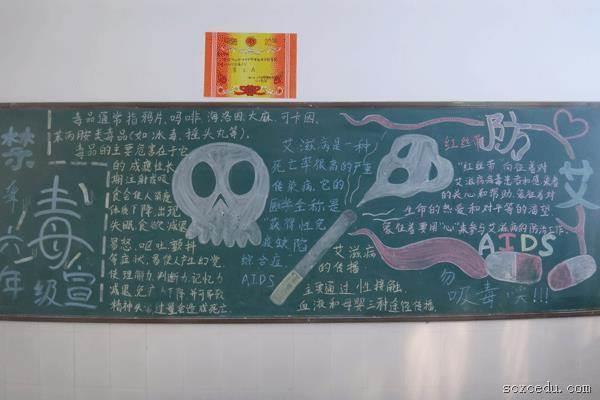 毒品通常指鸦片、吗啡、海洛因、大麻、可卡因、
苯丙胺类毒品(如冰毒、摇头丸等)。
毒品的主要危害在于它
的成瘾性,长
期注射或吸
食会使人深度
体质下降,出现
失眠,食欲减退
易怒,呕吐,颤抖
等症状,易使人产生幻觉,
使理解力,判断力,记忆力
减退
精神失
过量会造成死亡.
禁
毒
六年级宣
艾滋病是一种
死亡率很高的严重
传染病,它的
医学全称是
获得性免
疫缺陷
综合症
AIDS
艾滋病
的传播
主要通过性接触,
血液和母婴三种途径传播.
红丝带
防
艾
"红丝带"向往着对
艾滋病病毒患者和感染者
的关心和帮助,象征着对
生命的热爱和对平等的渴望
象征着要用"心"来参与艾滋病的防治工作.
AIDS
勿吸毒!!!
scxcedu.com